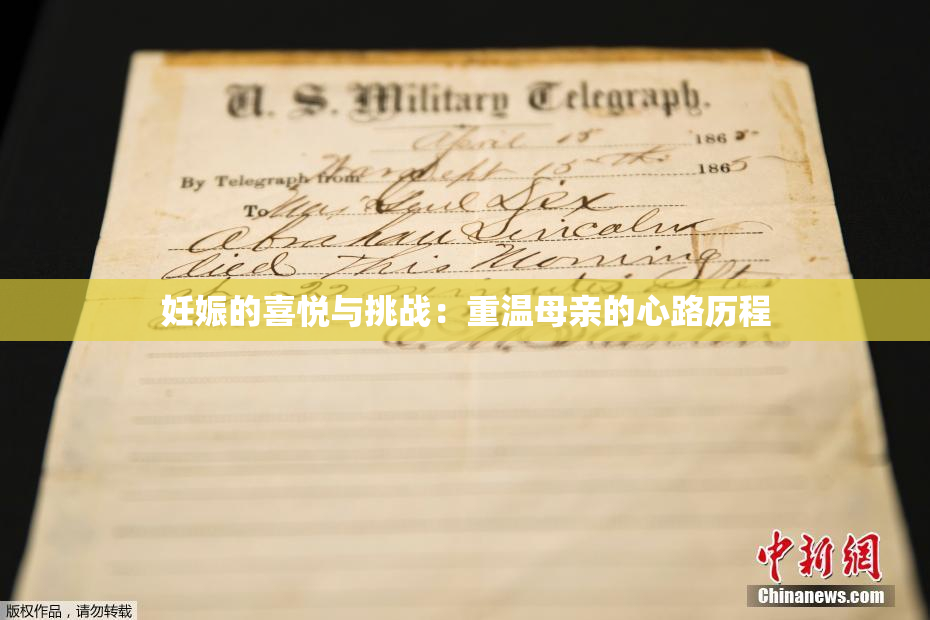 U. S. Military Telegraph.
April 15 1865
By Telegraph from War Dept 15th 1865
To Maj Genl Dix
Abraham Lincoln
died This Morning
22 minutes after
妊娠的喜悦与挑战：重温母亲的心路历程
E. M. Stanton
中新网
Chinanews.com
版权作品，请勿转载